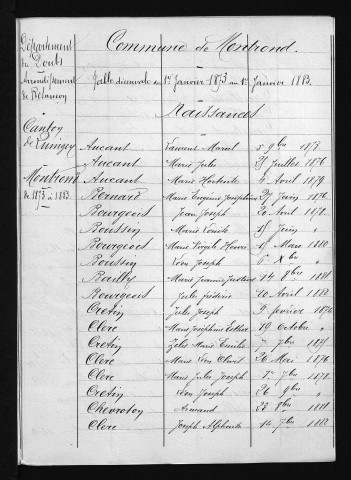 Département
du Doubs
Arrondissement
de Besançon
Canton
de Quingey
Montrond
de 1873 à 1883.
Commune de Montrond.
Table décennale du 1er Janvier 1873 au 1er Janvier 1883.
Naissances
Aucant Laurent Marcel 8 9bre 1878
Aucant Marie Julie 25 Juillet 1876
Aucant Marie Hortense 4 Avril 1879
Bernard Marie Eugénie Joséphine 29 Juin 1876
Bourgeois Jean Joseph 20 Avril 1878
Boussin Marie 15 Juin "
Bourgeois Marie 15 Mars 1880
Boussin Léon Joseph 6 Xbre "
Bailly Marie Jeanne 14 8bre 1881
Bourgeois Jules Frédéric 10 Avril 1882
Cretin Jules Joseph 9 février 1874
Clerc Marie Joséphine 19 Octobre "
Cretin Marie Emilie 7bre 1875
Clerc Marie Léon 20 Mai 1876
Clerc Marie Jules Joseph 7bre 1878
Cretin Léon Joseph 26 9bre "
Chevroton Armand 23 8bre 1881
Clerc Joseph Alphonse 14 7bre 1882